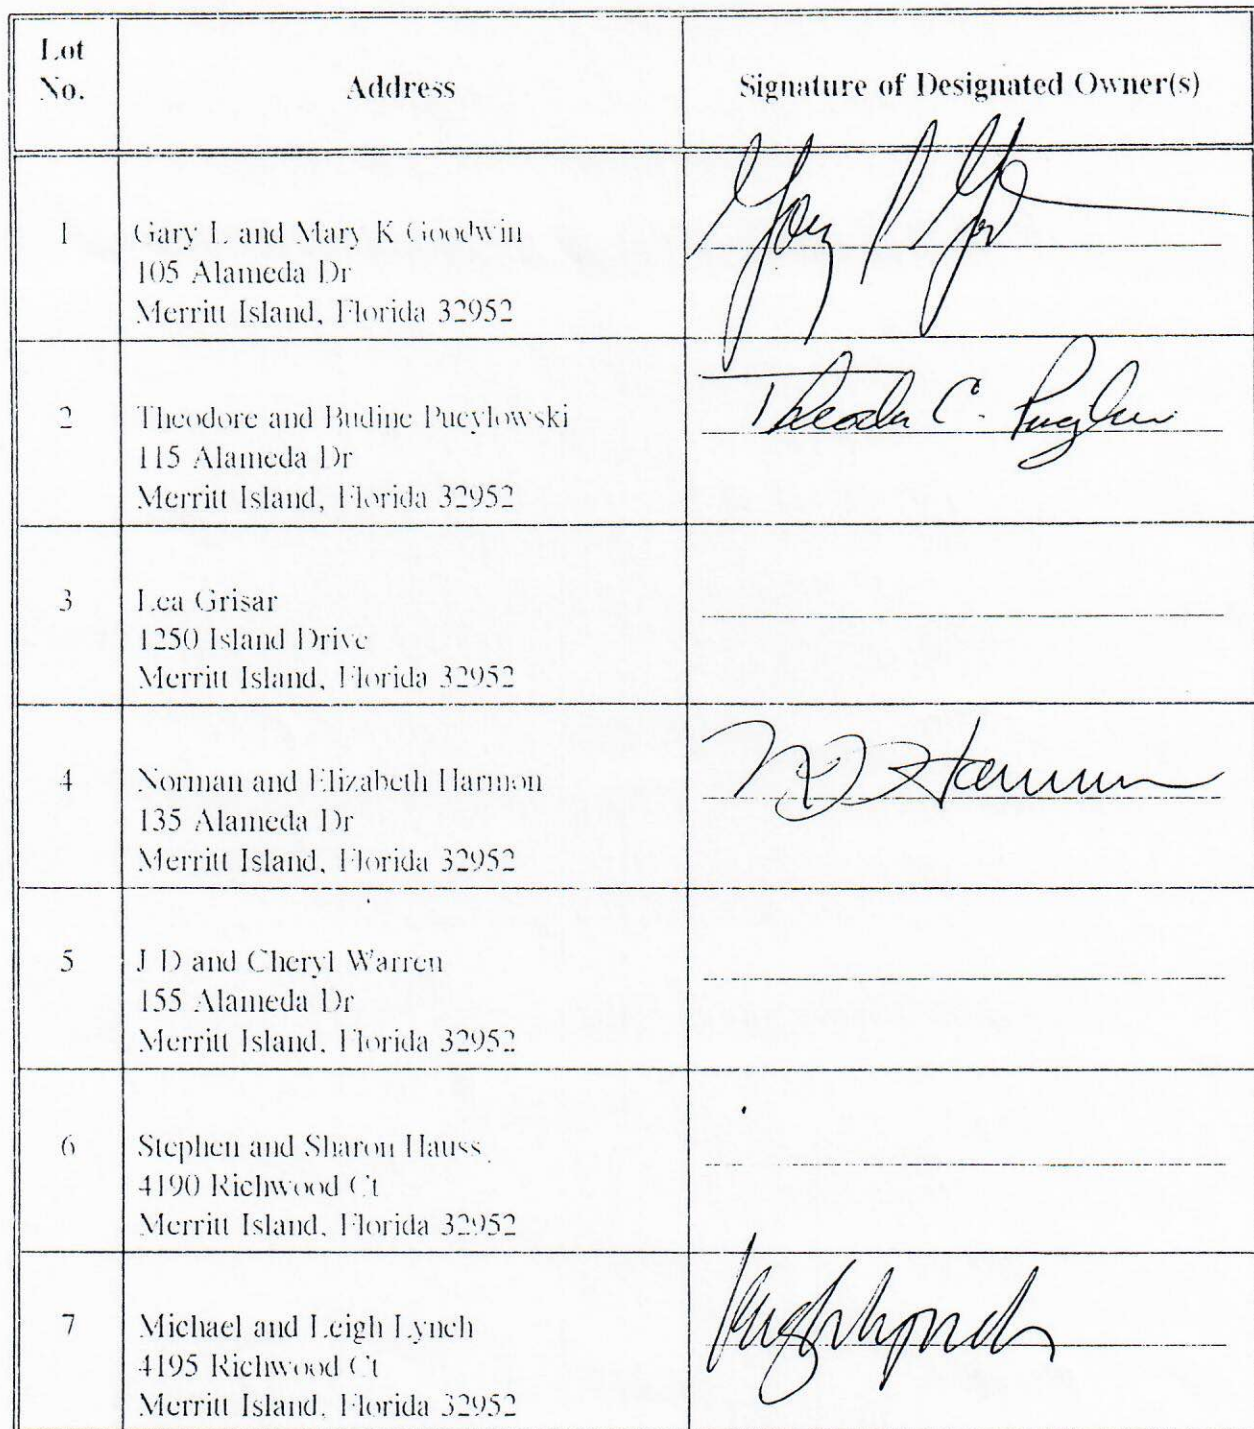 Lot No.
Address
Signature of Designated Owner(s)
1
Gary L and Mary K Goodwin
105 Alameda Dr
Merritt Island, Florida 32952
2
Theodore and Budine Pucylowski
115 Alameda Dr
Merritt Island, Florida 32952
Theodore C.
3
Lea Grisar
1250 Island Drive
Merritt Island, Florida 32952
4
Norman and Elizabeth Harmon
135 Alameda Dr
Merritt Island, Florida 32952
Harmon
5
J D and Cheryl Warren
155 Alameda Dr
Merritt Island, Florida 32952
6
Stephen and Sharon Hauss
4190 Richwood Ct
Merritt Island, Florida 32952
7
Michael and Leigh Lynch
4195 Richwood Ct
Merritt Island, Florida 32952
Leigh Lynch